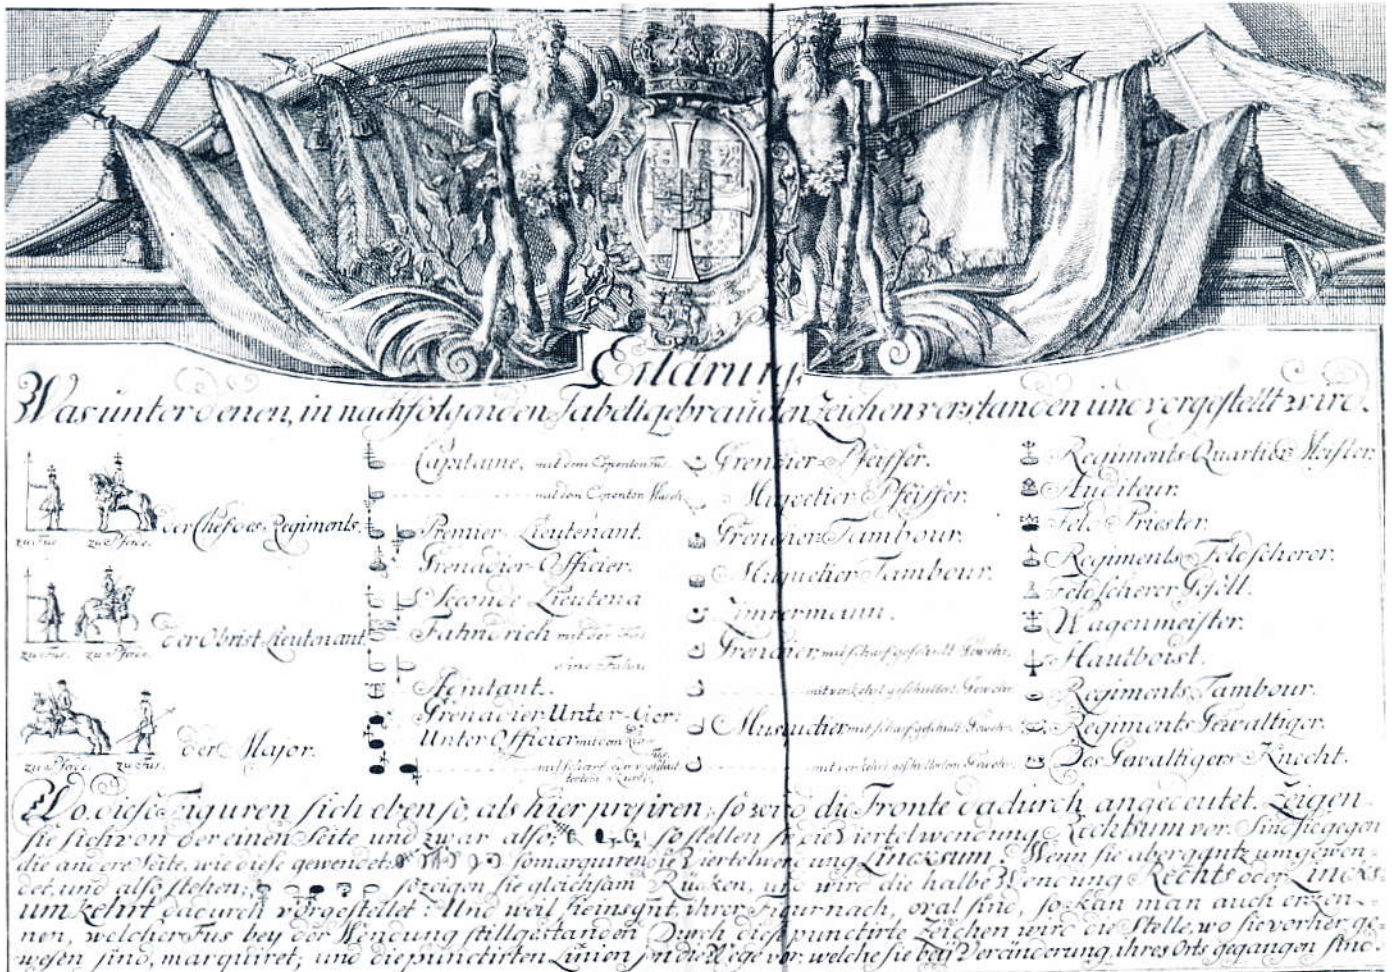 Erklärung,
Was unter denen, in nachfolgenden Tabell gebrauchten Zeichen verstanden und vorgestellt wird.
zu Fus. zu Pferde. der Chef des Regiments.
zu Fus. zu Pferde. der Obrist Lieutenant
zu Pferde. zu Fus. der Major.
Capitaine, mit dem Esponton
mit dem Esponton
Premier-Lieutenant.
Grenadier-Officier.
Seconde Lieutena
Fahndrich mit der
ohne Fahne
Adjutant.
Grenadier Unter-
Unter Officier mit dem
Grenadier-Pfeiffer.
Musquetier Pfeiffer.
Grenadier-Tambour.
Musquetier Tambour.
Zimmermann.
Grenadier, mit scharf geschult. Gewehr.
mit verkehrt geschultert. Gewehr
Musquetier mit scharf geschult. Gewehr.
mit verkehrt geschultertem Gewehr.
Regiments Quartier Meister.
Auditeur.
Feld Priester.
Regiments Feldscherer.
Feldscherer Gesell.
Wagenmeister.
Hautboist.
Regiments Tambour.
Regiments Gewaltiger.
Des Gewaltigers Knecht.
Wo diese Figuren sich eben so, als hier presiren, so wird die Fronte dadurch angedeutet. Zeigen
sie sich von der einen Seite und zwar also: so stellen sie die Viertelwendung Rechtsum vor. Sind sie gegen
die andere Seite, wie diese gewendet: so marquiren die Viertelwendung Lincksum. Wenn sie aber gantz umgewen-
det, und also stehen: so zeigen sie gleichsam Rücken, und wird die halbe Wendung Rechts oder Lincks
umkehrt dadurch vorgestellet: Und weil sie insgnt, ihrer Figur nach, oval sind, so kan man auch erken-
nen, welcher Fus bey der Wendung stillgestanden Durch dies punctirte Zeichen wird die Stelle, wo sie vorher ge-
wesen sind, marquiret; und die punctirten Linien die Wege vor, welche sie bey Veränderung ihres Orts gegangen sind.